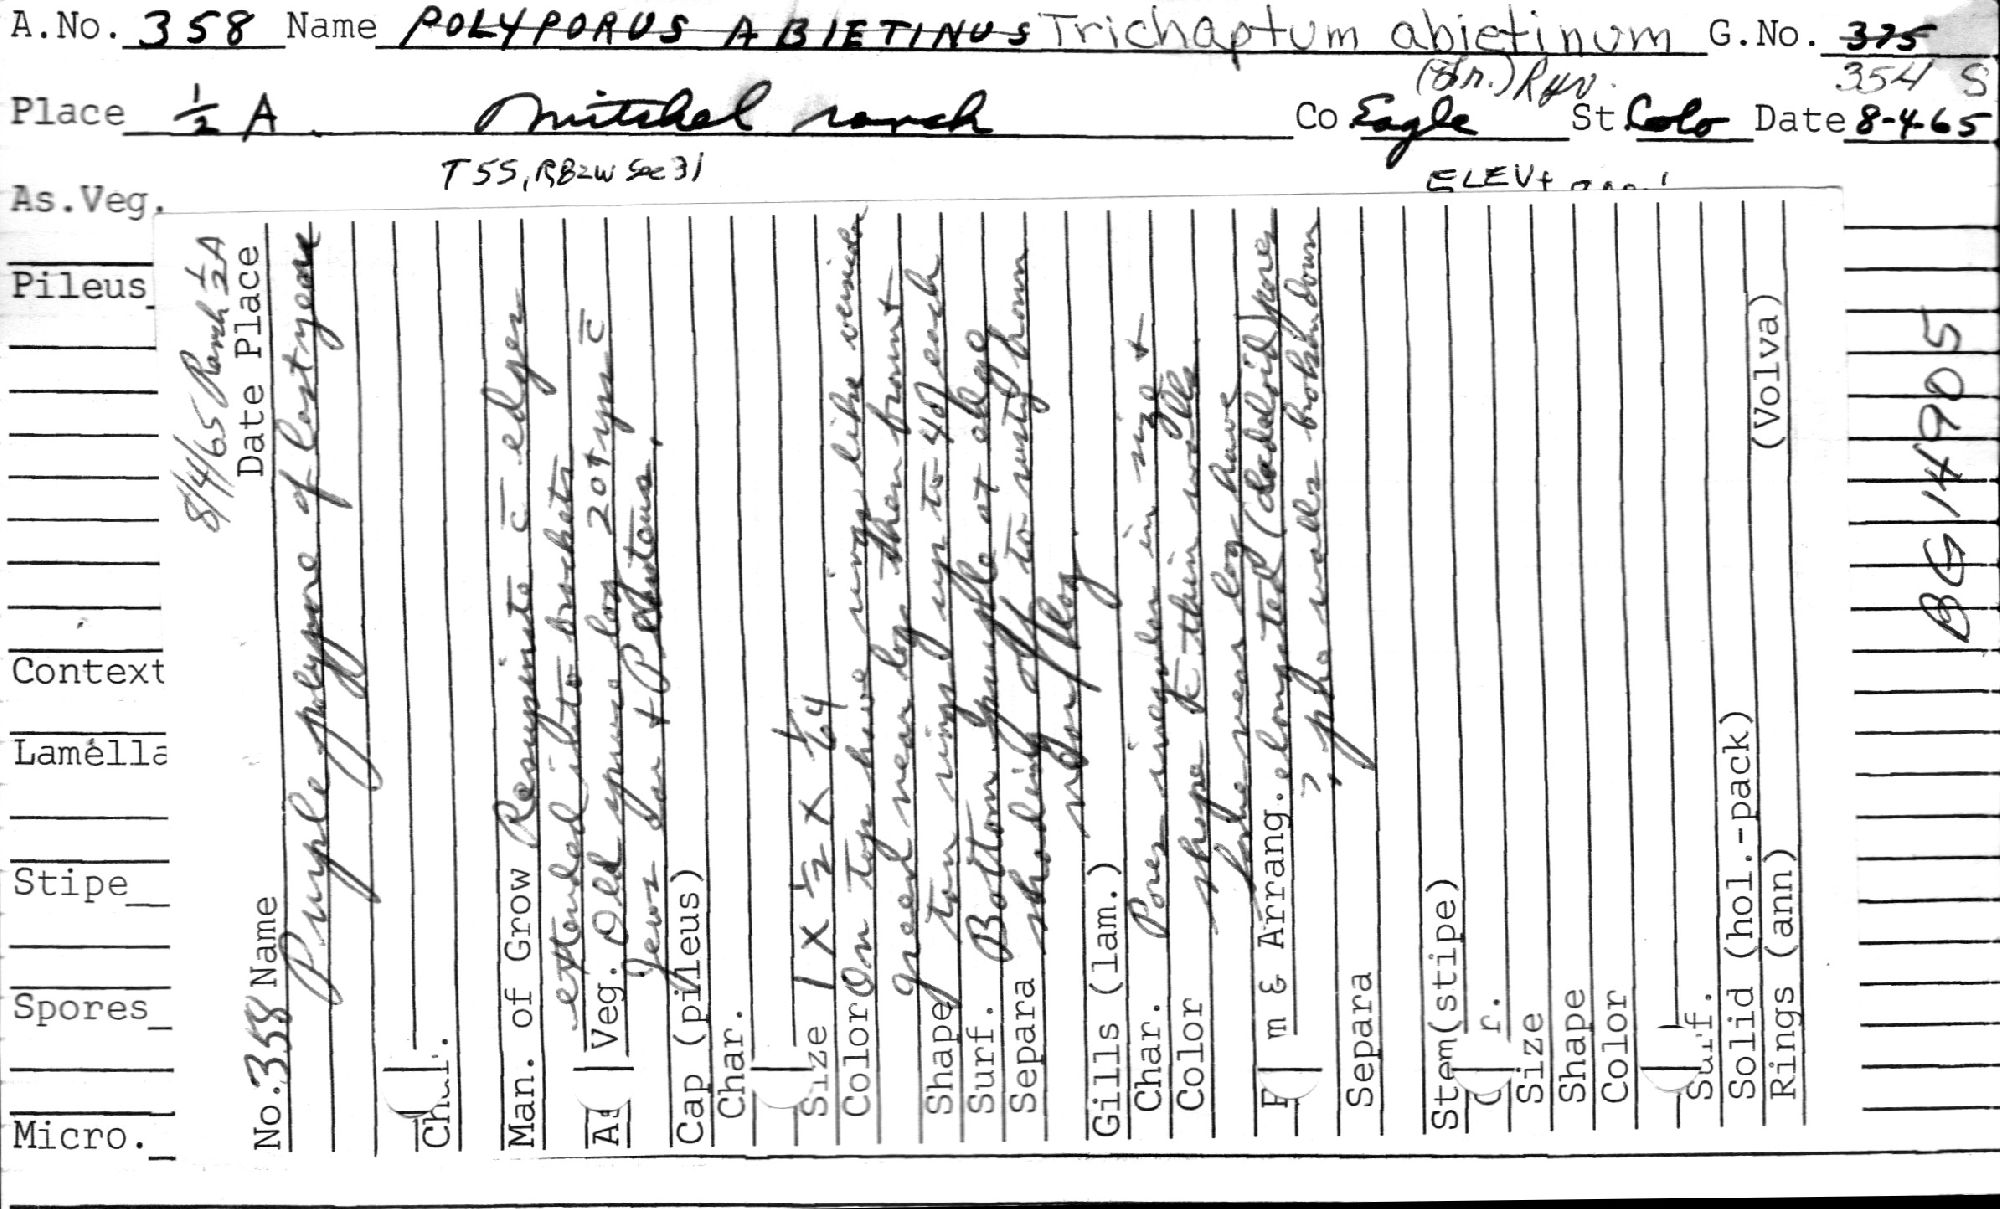 A.No. 358 Name POLYPORUS ABIETINUS Trichaptum abietinum G.No. 375
354 S
Place ½ A. Mitchel ranch Co Eagle St. Colo Date 8-4-65
T5S, R82W Sec 31 ELEV+
As.Veg.
Pileus
Context
Lamella
Stipe
Spores
Micro.
BG 14905
8/4/65 Ranch ½A
No. 358 Name Date Place
Purple polypore of last year
Char.
Man. of Grow Resupinate c̄ edges
extended into brackets
Veg. Old spruce log 20+ yrs c̄
Cap (pileus)
Char.
Size 1 x ½ x 1/64
Color On top have rings like
green near log then
Shape tan rings up to 40 each
Surf. Bottom purple at edge
Separa shading off to rusty brown
near log
Gills (lam.)
Char. Pores irregular in size +
Color shape c̄ thin walls
Those near log have
m & Arrang. elongated (daedaloid) pores
walls broken down
Separa
Stem(stipe)
Size
Shape
Color
Surf.
Solid (hol.-pack)
Rings (ann) (Volva)